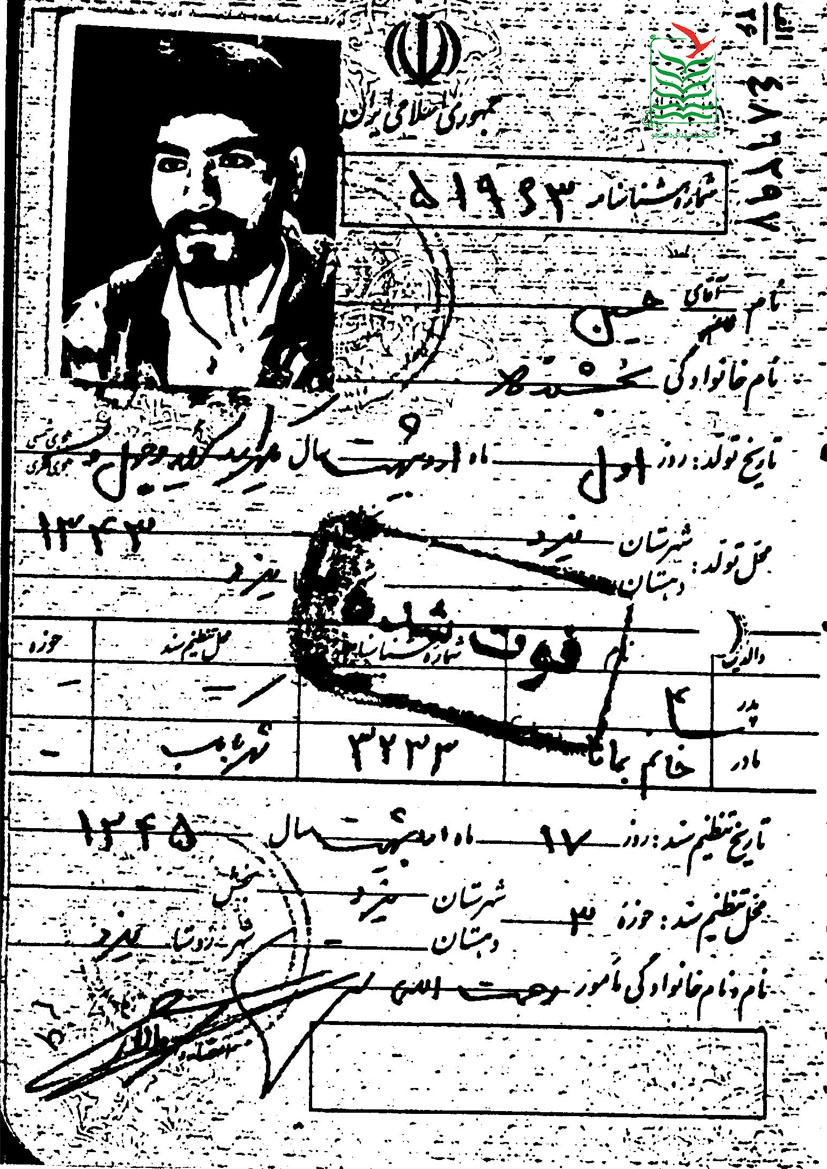 الف
۲۶
۴۸۶۲۹۷
جمهوری اسلامی ایران
شماره شناسنامه ۵۱۹۶۳
نام آقای خانم حسین
نام خانوادگی
تاریخ تولد: روز اول ماه اردیبهشت سال هزار و سیصد و چهل و هجری شمسی هجری قمری
۱۳۴۳
محل تولد: شهرستان یزد
دهستان یزد
فوت شده
والدین نام شماره شناسنامه محل تنظیم سند حوزه
پدر
مادر خانم بمانا ۳۲۳۳ شهربابک -
تاریخ تنظیم سند: روز ۱۷ ماه اردیبهشت سال ۱۳۴۵
محل تنظیم سند: حوزه ۳ شهرستان یزد بخش
دهستان - شهر روستا یزد
نام و نام خانوادگی مأمور رحمت الله